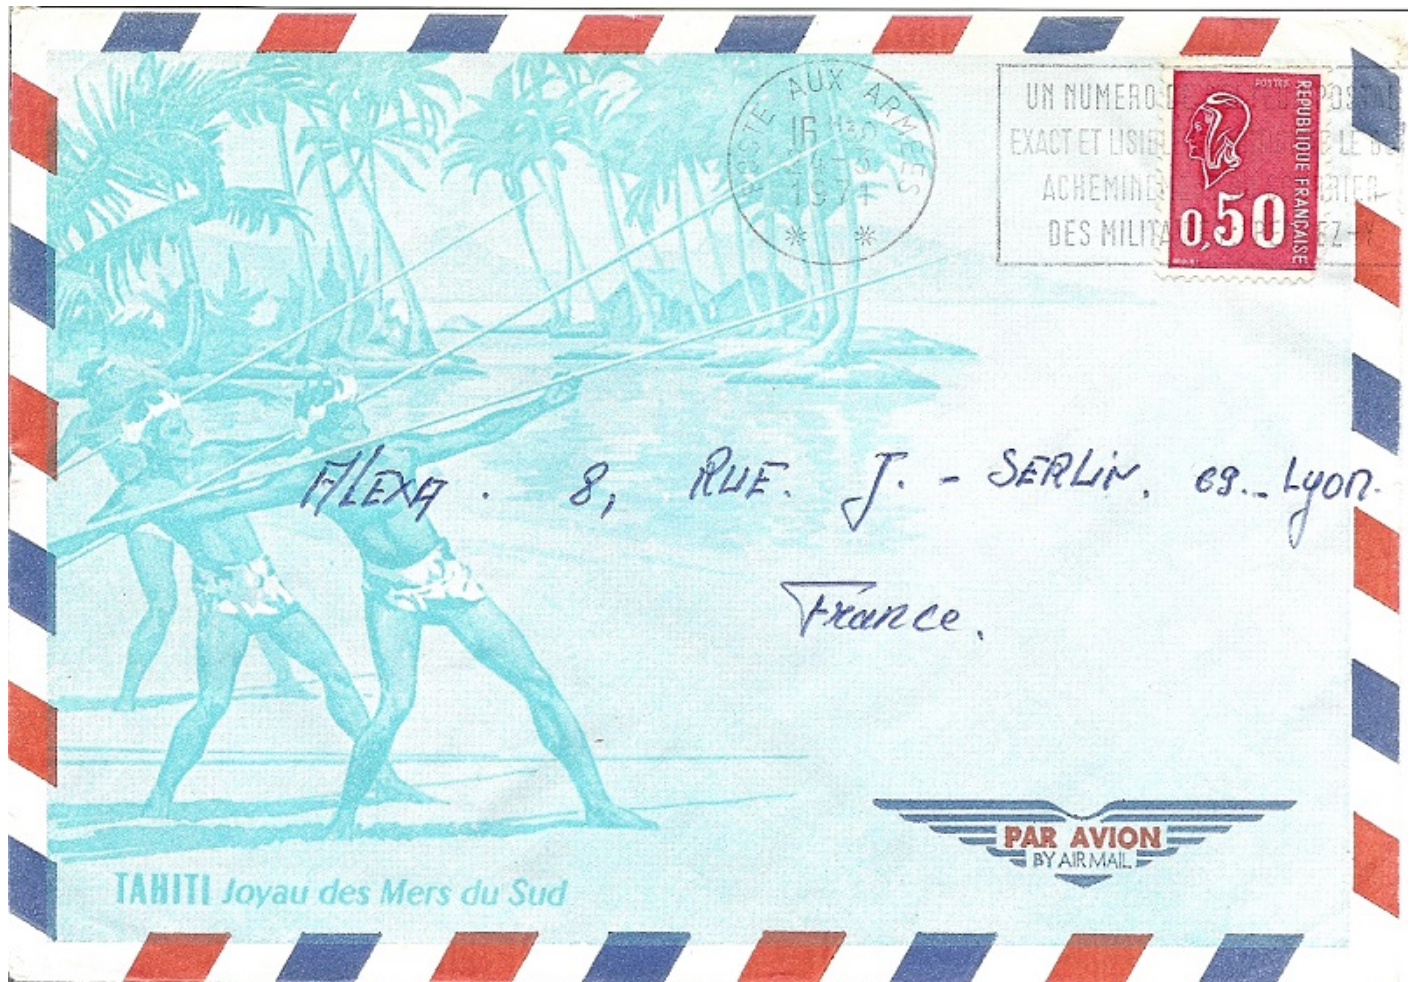 POSTE AUX ARMÉES
16 H30
1971
* *
UN NUMERO POSTAL
EXACT ET LISIBLE LE
ACHEMINE
DES MILITA
POSTES
REPUBLIQUE FRANCAISE
0,50
ALEXA. 8, RUE. J. - SERLIN. 69.- Lyon.
France.
PAR AVION
BY AIR MAIL
TAHITI Joyau des Mers du Sud